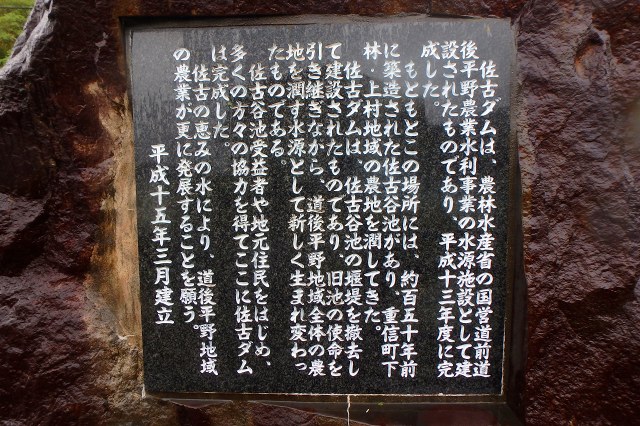 佐古ダムは、農林水産省の国営道前道
後平野農業水利事業の水源施設として建
設されたものであり、平成十三年度に完
成した。
もともとこの場所には、約百五十年前
に築造された佐古谷池があり、重信町下
林、上村地域の農地を潤してきた。
佐古ダムは、佐古谷池の堰堤を撤去し
て建設されたものであり、旧池の使命を
引き継ぎながら、道後平野地域全体の農
地を潤す水源として新しく生まれ変わっ
たものである。
佐古谷池受益者や地元住民をはじめ、
多くの方々の協力を得てここに佐古ダム
は完成した。
佐古の恵みの水により、道後平野地域
の農業が更に発展することを願う。
平成十五年三月建立